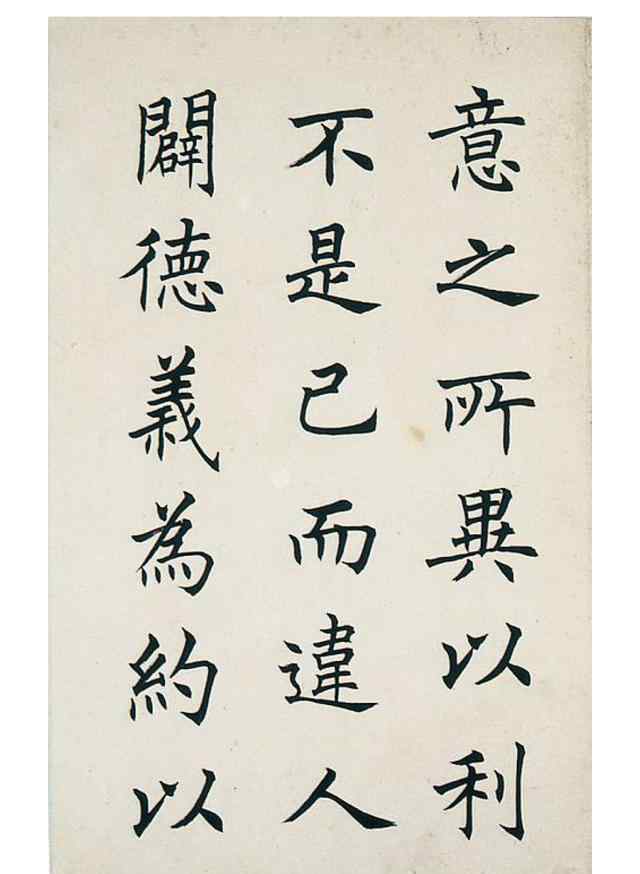 意之所異以利
不是已而違人
闢德義為約以